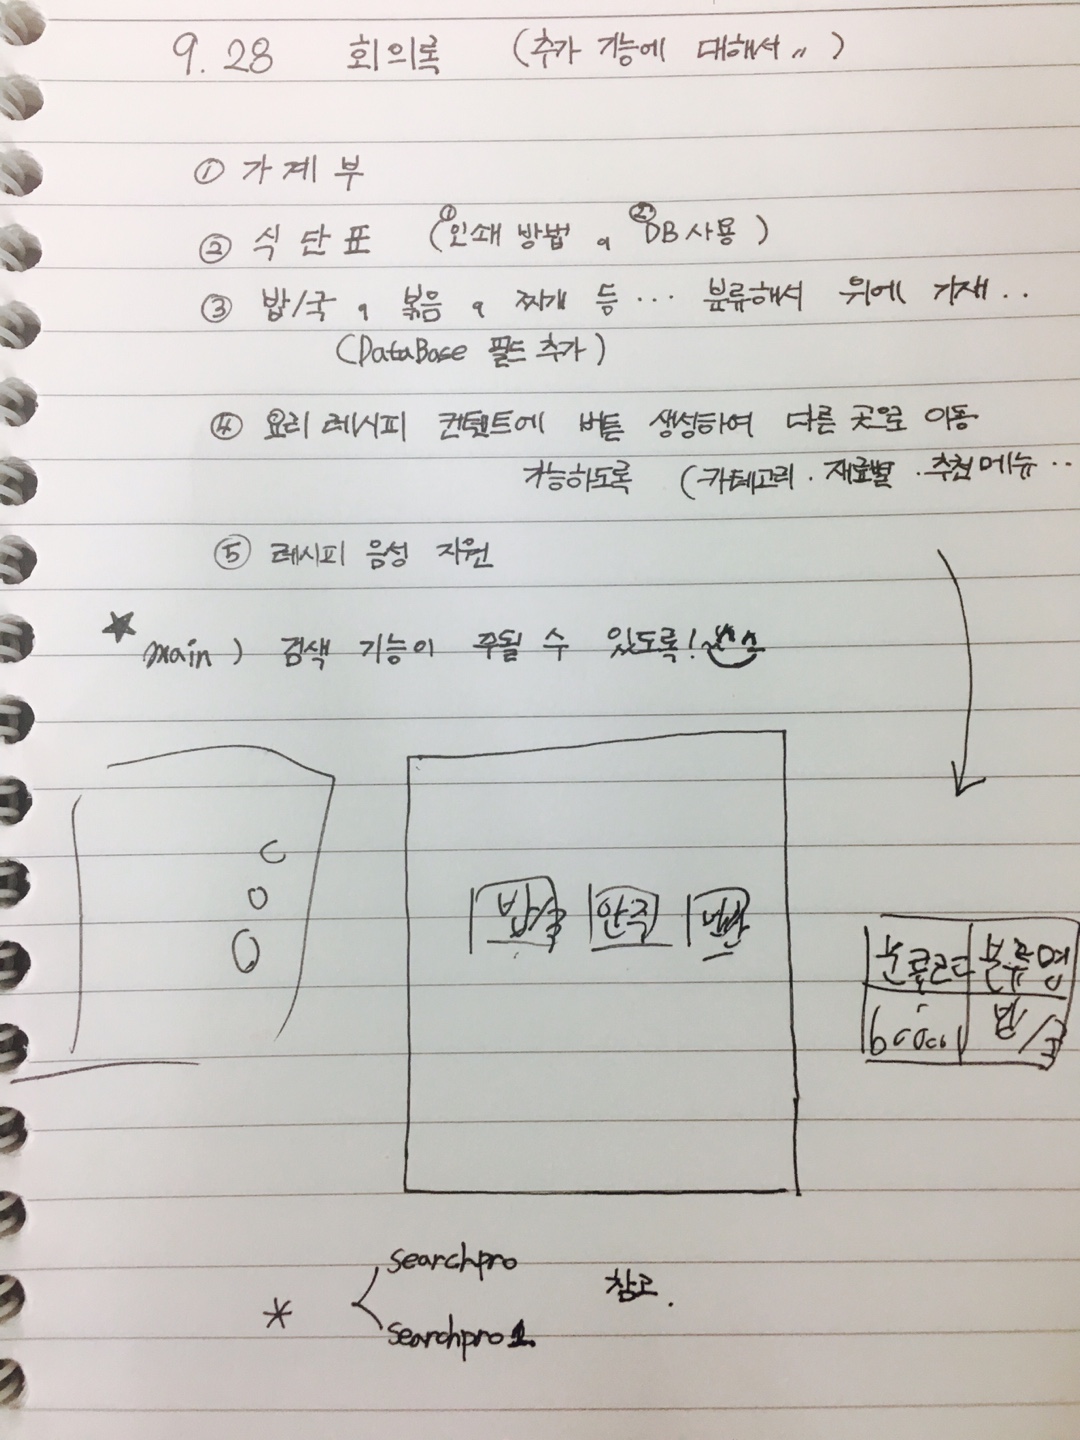 9. 28 회의록 (추가 기능에 대해서〃)
① 가계부
② 식단표 (①인쇄 방법, ②DB사용)
③ 밥/국, 볶음, 찌개 등… 분류해서 위에 기재..
(DataBase 필드 추가)
④ 요리 레시피 컨텐트에 버튼 생성하여 다른 곳으로 이동
가능하도록 (카테고리 · 재료별 · 추천메뉴 ..
⑤ 레시피 음성 지원
★ main) 검색 기능이 주될 수 있도록! ^^
밥/국 안주
분류코드 분류명
밥/국
* searchpro 참고.
searchpro1